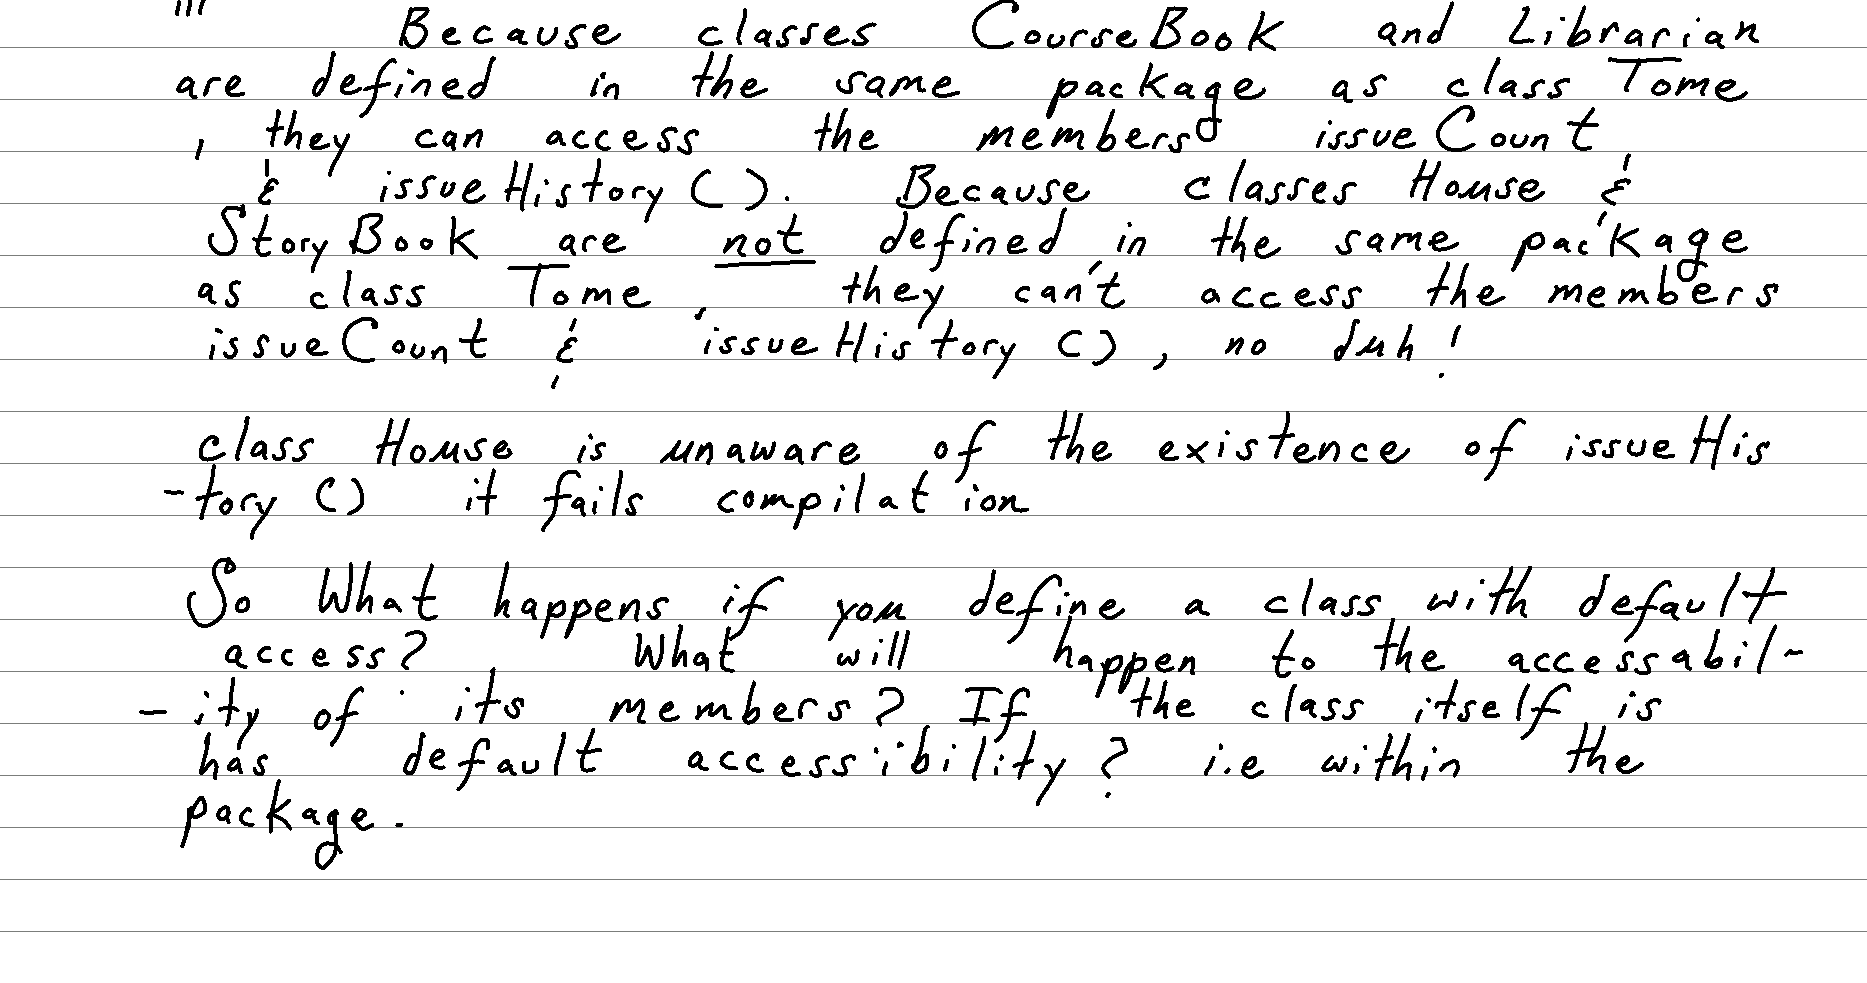 ''' Because classes CourseBook and Librarian
are defined in the same package as class Tome
, they can access the members issueCount
& issueHistory(). Because classes House &
StoryBook are not defined in the same package
as class Tome, they can't access the members
issueCount & issueHistory(), no duh!
class House is unaware of the existence of issueHis
-tory() it fails compilation
So What happens if you define a class with default
access? What will happen to the accessabil-
-ity of its members? If the class itself is
has default accessibility? i.e within the
package.